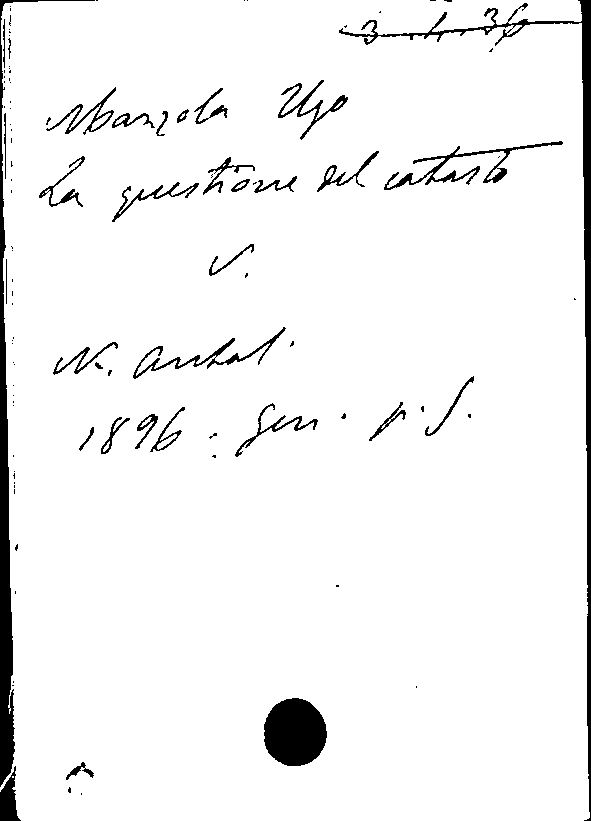 3.4.36
Manzola Ugo
La questione del catasto
V.
N. Antol.
1896. Gen. p. S.